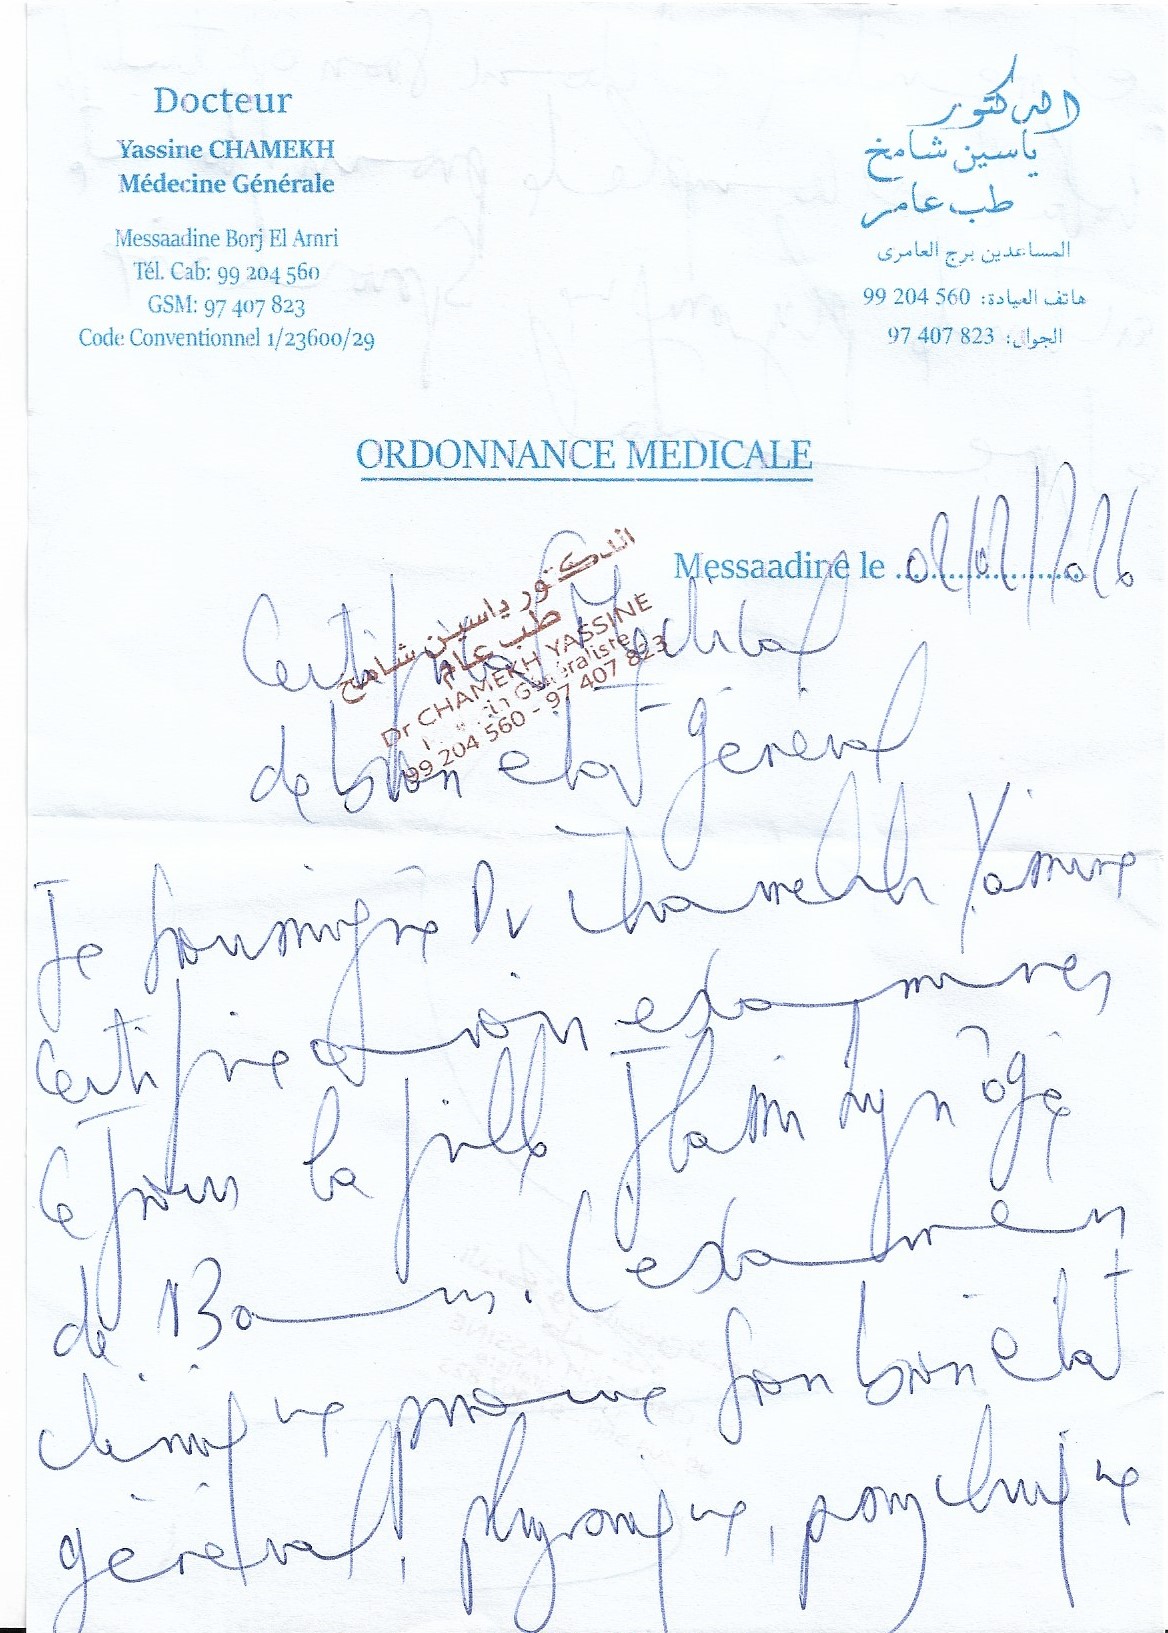 Docteur
Yassine CHAMEKH
Médecine Générale
Messaadine Borj El Amri
Tél. Cab: 99 204 560
GSM: 97 407 823
Code Conventionnel 1/23600/29
الدكتور
ياسين شامخ
طب عام
المساعدين برج العامري
هاتف العيادة: 560 204 99
الجوال: 823 407 97
ORDONNANCE MEDICALE
Messaadine le
الدكتور ياسين شامخ
طب عام
Dr CHAMEKH YASSINE
Généraliste
99 204 560 - 97 407 823
Certificat Médical
de bon etat Général
Je soussigné Dr Chamekh Yassine
Certifie avoir examiner
Ce jour la fille âgé
de 13 ans. L'examen
clinique prouve son bon etat
général, physique, psychique